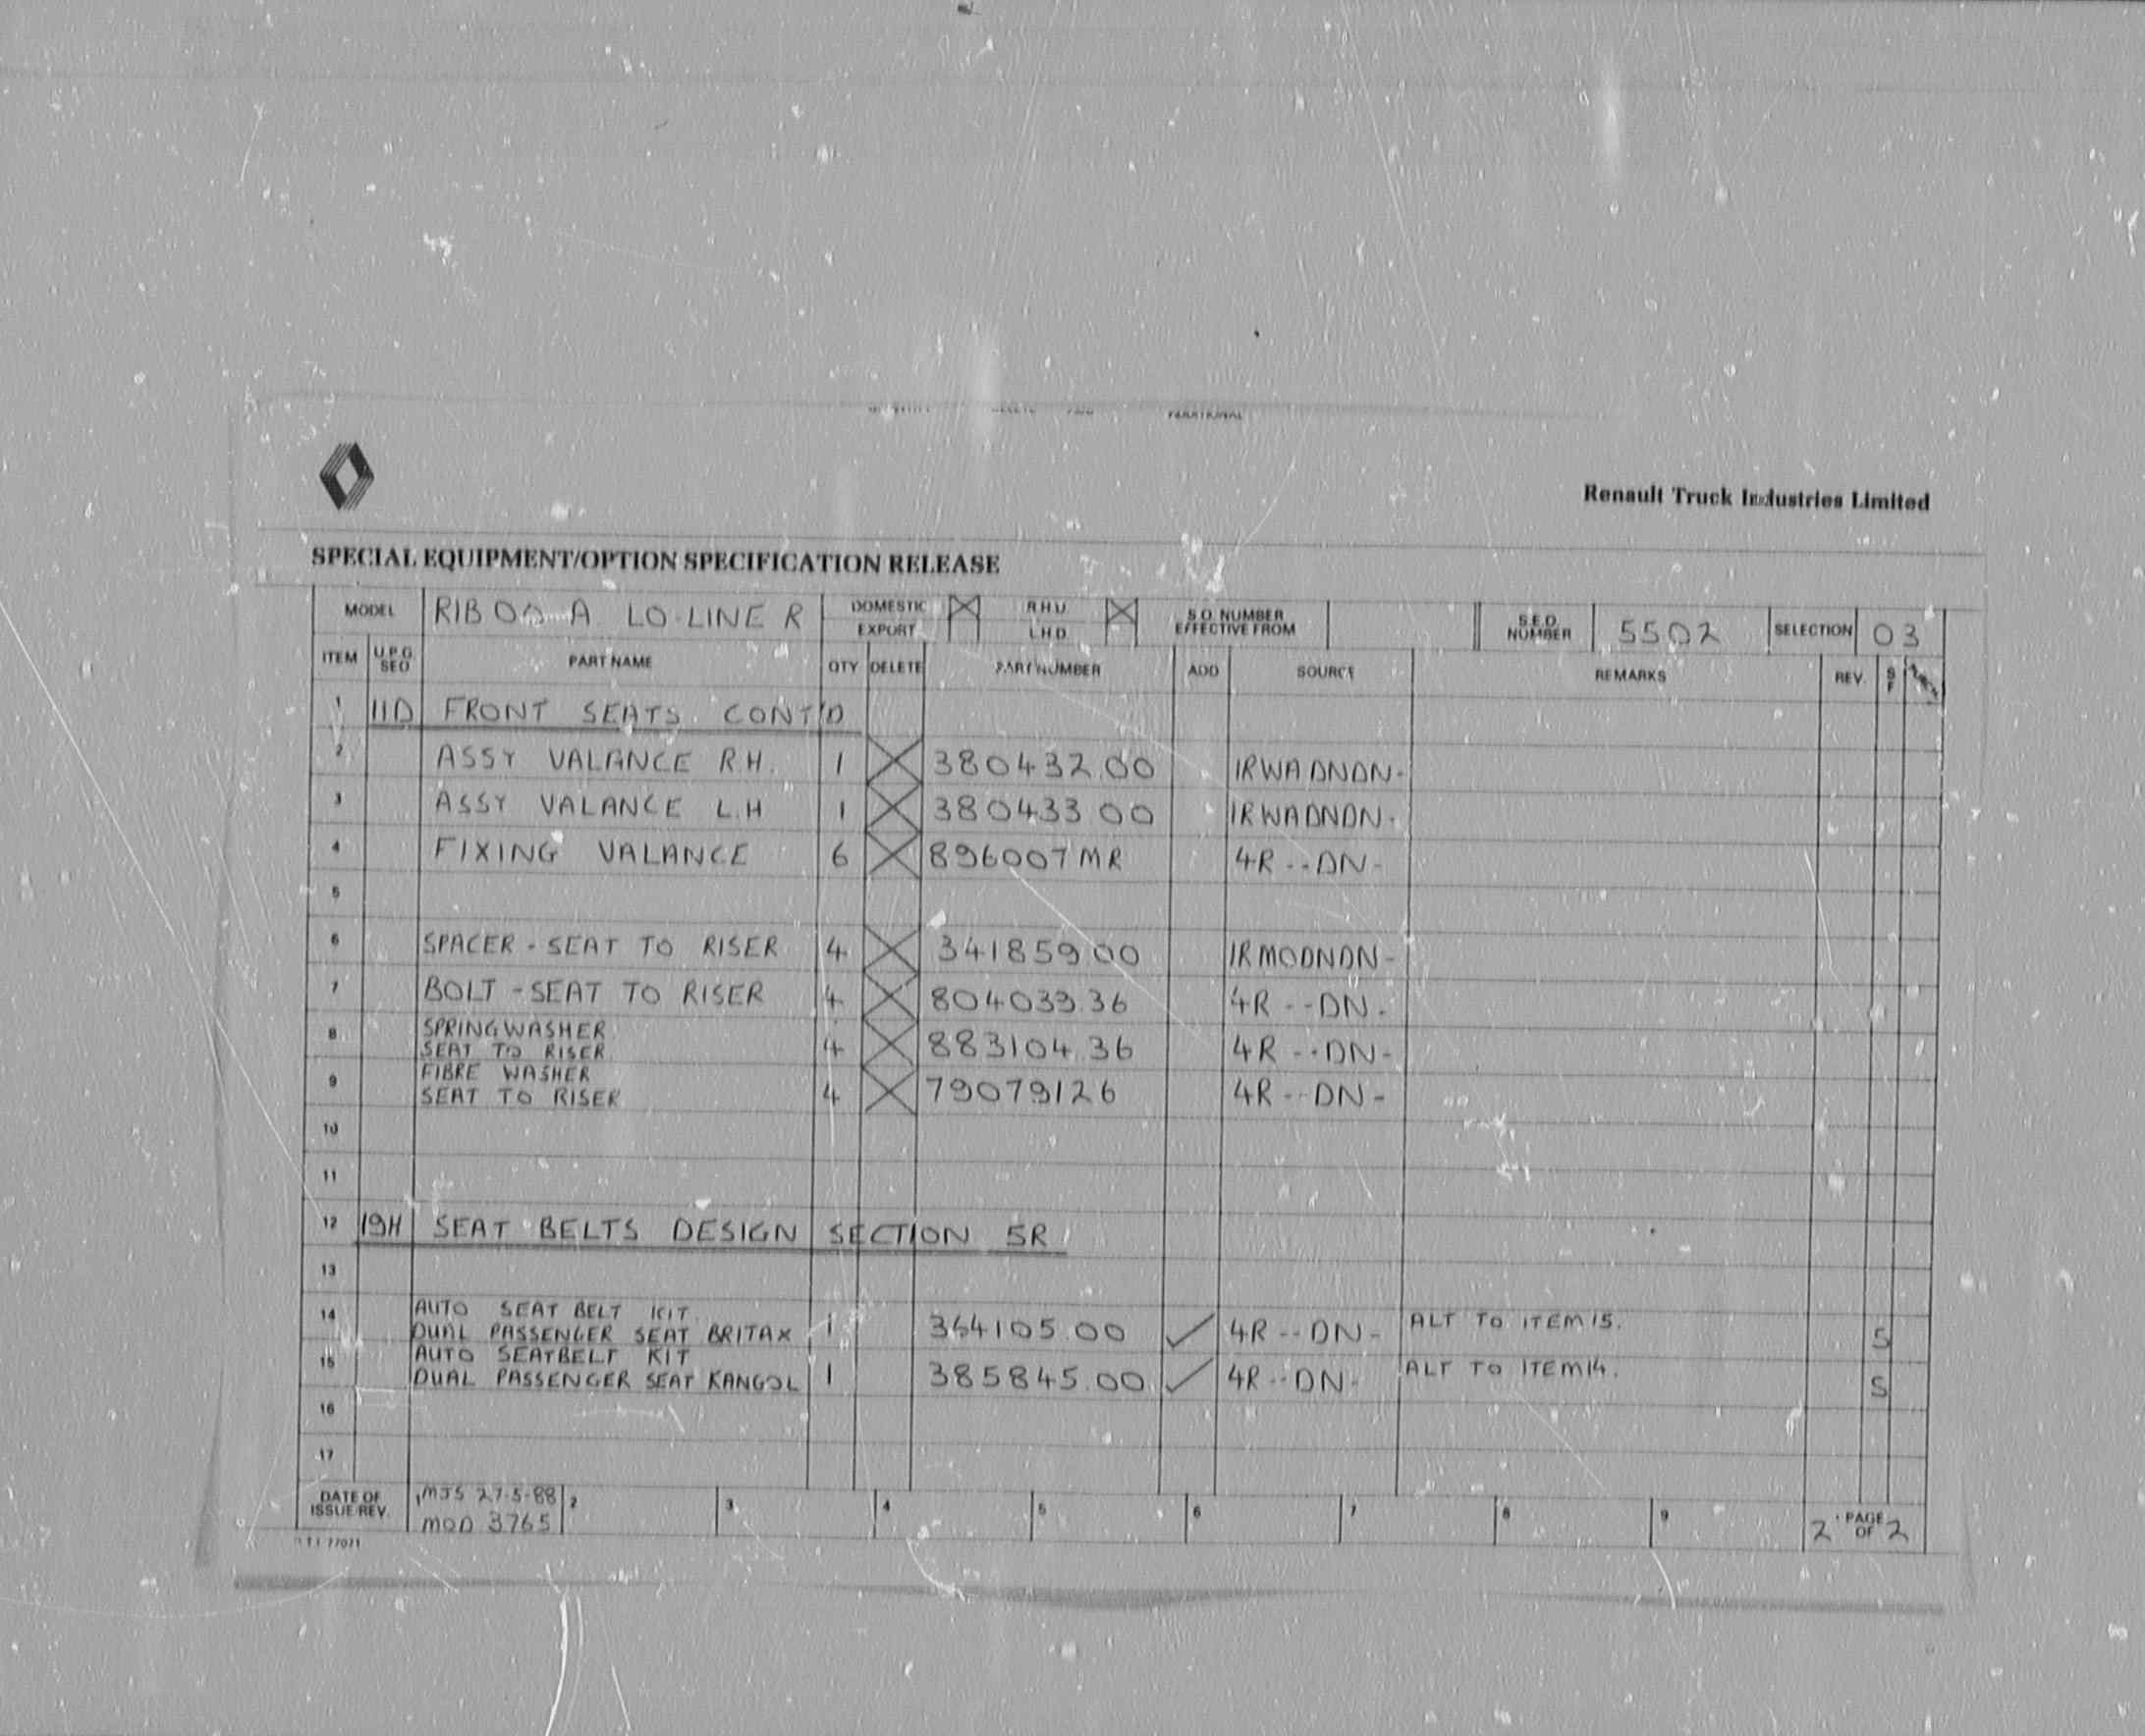 Renault Truck Industries Limited
SPECIAL EQUIPMENT/OPTION SPECIFICATION RELEASE
MODEL RIB 00 A LO-LINE R DOMESTIC EXPORT R H D L H D S.O. NUMBER EFFECTIVE FROM S.E.O. NUMBER 5502 SELECTION 03
ITEM U.P.G. SEO PART NAME QTY DELETE PART NUMBER ADD SOURCE REMARKS REV. S F
1 11D FRONT SEATS CONT'D
2 ASSY VALANCE RH. 1 380432.00 1RWADNDN-
3 ASSY VALANCE L.H 1 380433 00 1RWADNDN-
4 FIXING VALANCE 6 896007MR 4R--DN-
5
6 SPACER - SEAT TO RISER 4 341859 00 1RMODNDN-
7 BOLT - SEAT TO RISER 4 804039.36 4R--DN-
8 SPRINGWASHER
SEAT TO RISER 4 883104.36 4R--DN-
9 FIBRE WASHER
SEAT TO RISER 4 79079126 4R--DN-
10
11
12 19H SEAT BELTS DESIGN SECTION 5R
13
14 AUTO SEAT BELT KIT
DUAL PASSENGER SEAT BRITAX 1 364105.00 ✓ 4R--DN- ALT TO ITEM 15. S
15 AUTO SEATBELT KIT
DUAL PASSENGER SEAT KANGOL 1 385845.00 ✓ 4R--DN- ALT TO ITEM 14. S
16
17
DATE OF ISSUE/REV. 1 MJS 27-5-88 2 3 4 5 6 7 8 9 2 PAGE OF 2
MOD 3765
77071